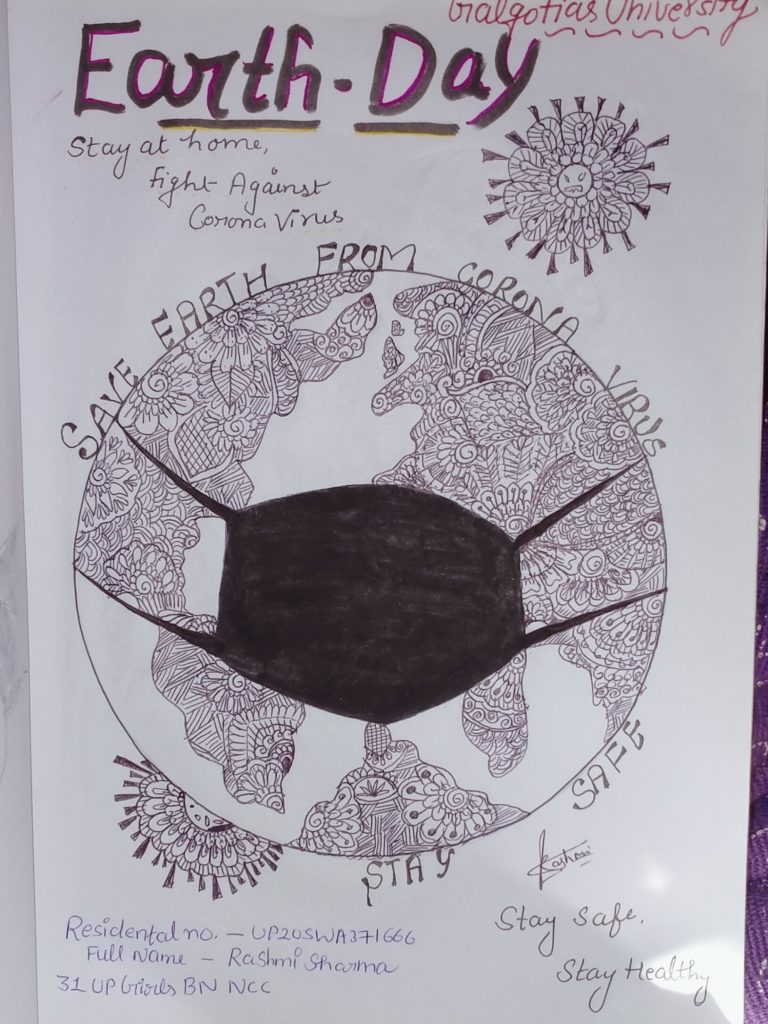 Galgotias University
Earth-Day
Stay at home,
Fight Against
Corona Virus
SAVE EARTH FROM CORONA VIRUS
SAFE
STAY
Rashmi
Stay Safe,
Stay Healthy
Residental no. - UP20SWA371666
Full Name - Rashmi Sharma
31 UP Girls BN NCC